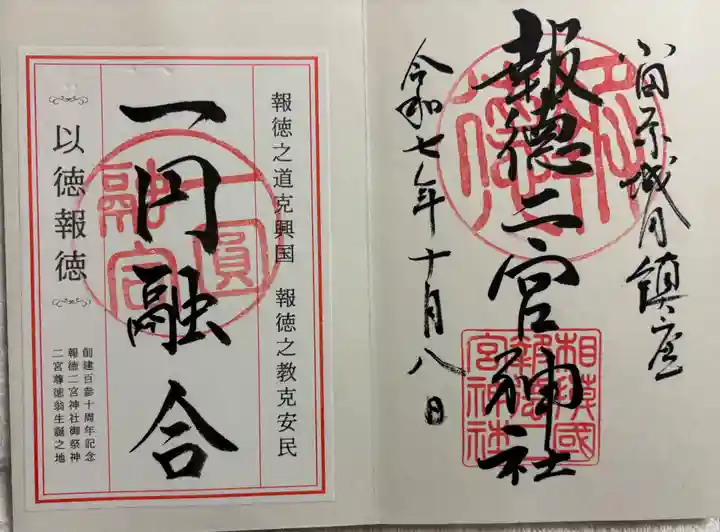 小田原城内鎮座
報徳二宮神社
令和七年十月八日
相模國
報徳二
宮神社
報徳之道克興国 報徳之教克安民
一円融合
一圓
融合
以徳報徳
創建百参十周年記念
報徳二宮神社御祭神
二宮尊徳翁生誕之地